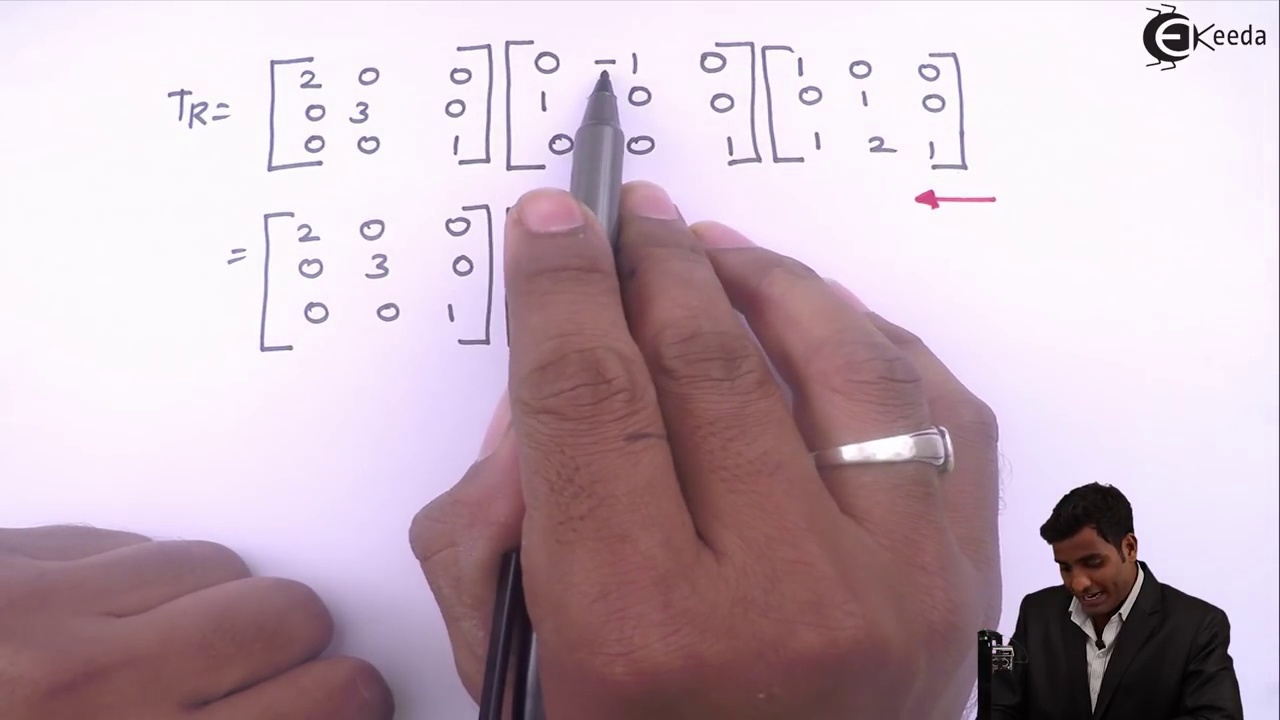 EKeeda
TR= [2 0 0] [0 -1 0] [1 0 0]
[0 3 0] [1 0 0] [0 1 0]
[0 0 1] [0 0 1] [1 2 1]
= [2 0 0] [
[0 3 0]
[0 0 1]